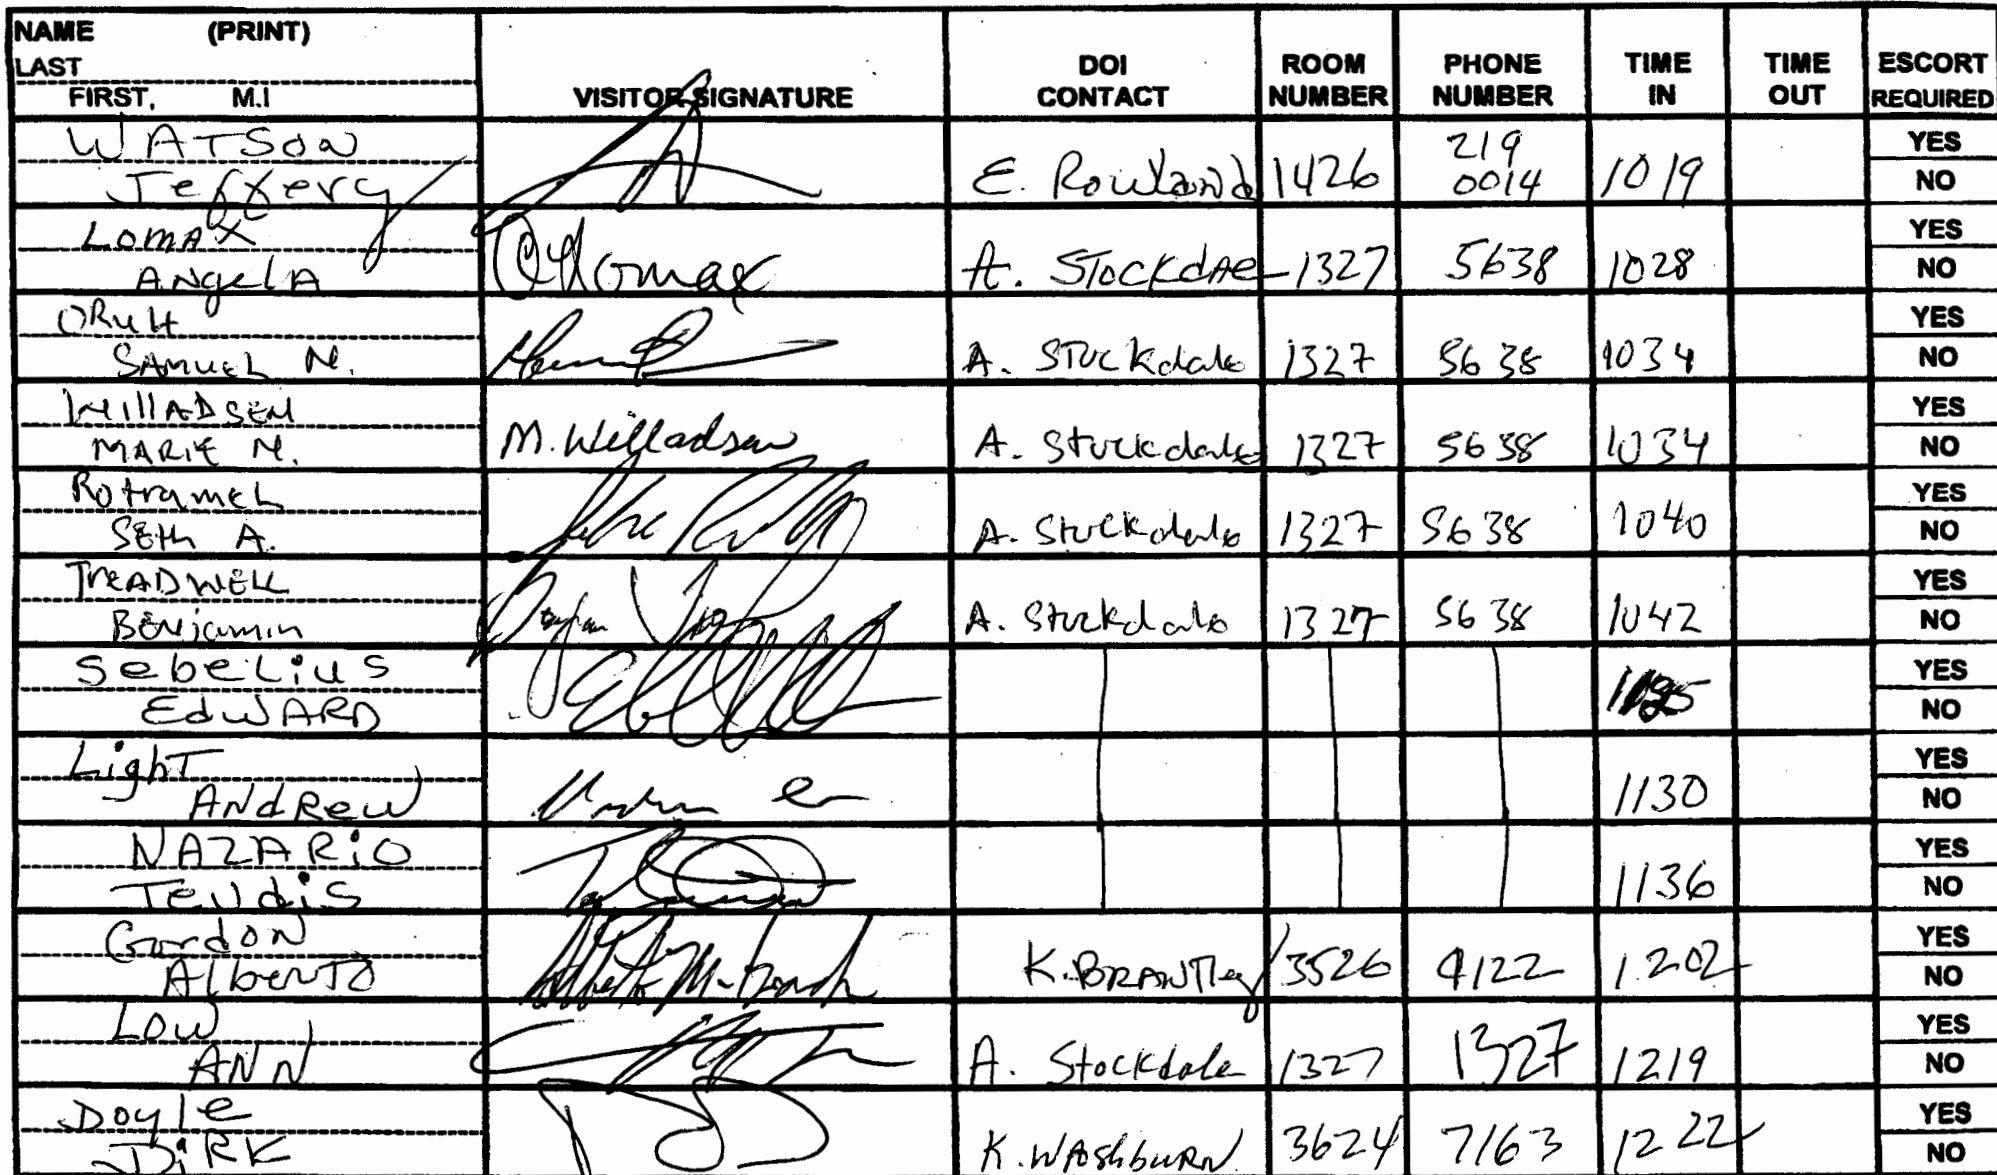 NAME (PRINT)
LAST
FIRST, M.I
VISITOR SIGNATURE
DOI CONTACT
ROOM NUMBER
PHONE NUMBER
TIME IN
TIME OUT
ESCORT REQUIRED
WATSON
Jeffery
E. Rowland 1426 219 0014 1019
YES
NO
LOMAX
ANgelA
A. STOCKDAE 1327 5638 1028
YES
NO
ORult
SAMUEL N.
A. Stockdale 1327 5638 1034
YES
NO
WillADSEN
MARIE N.
M. Willadsen
A. Stockdale 1327 5638 1034
YES
NO
Rotramel
SEth A.
A. Stockdale 1327 5638 1040
YES
NO
TREADWELL
BENjamin
A. Stockdale 1327 5638 1042
YES
NO
SebeLiuS
EdWARD
YES
NO
LighT
ANdRew
1130
YES
NO
NAZARiO
TeUdiS
1136
YES
NO
GordoN
AlberTO
K. BRANTley 3526 4122 1202
YES
NO
Low
ANN
A. Stockdale 1327 1327 1219
YES
NO
Doyle
DiRK
K. WAShbuRN 3624 7163 1222
YES
NO